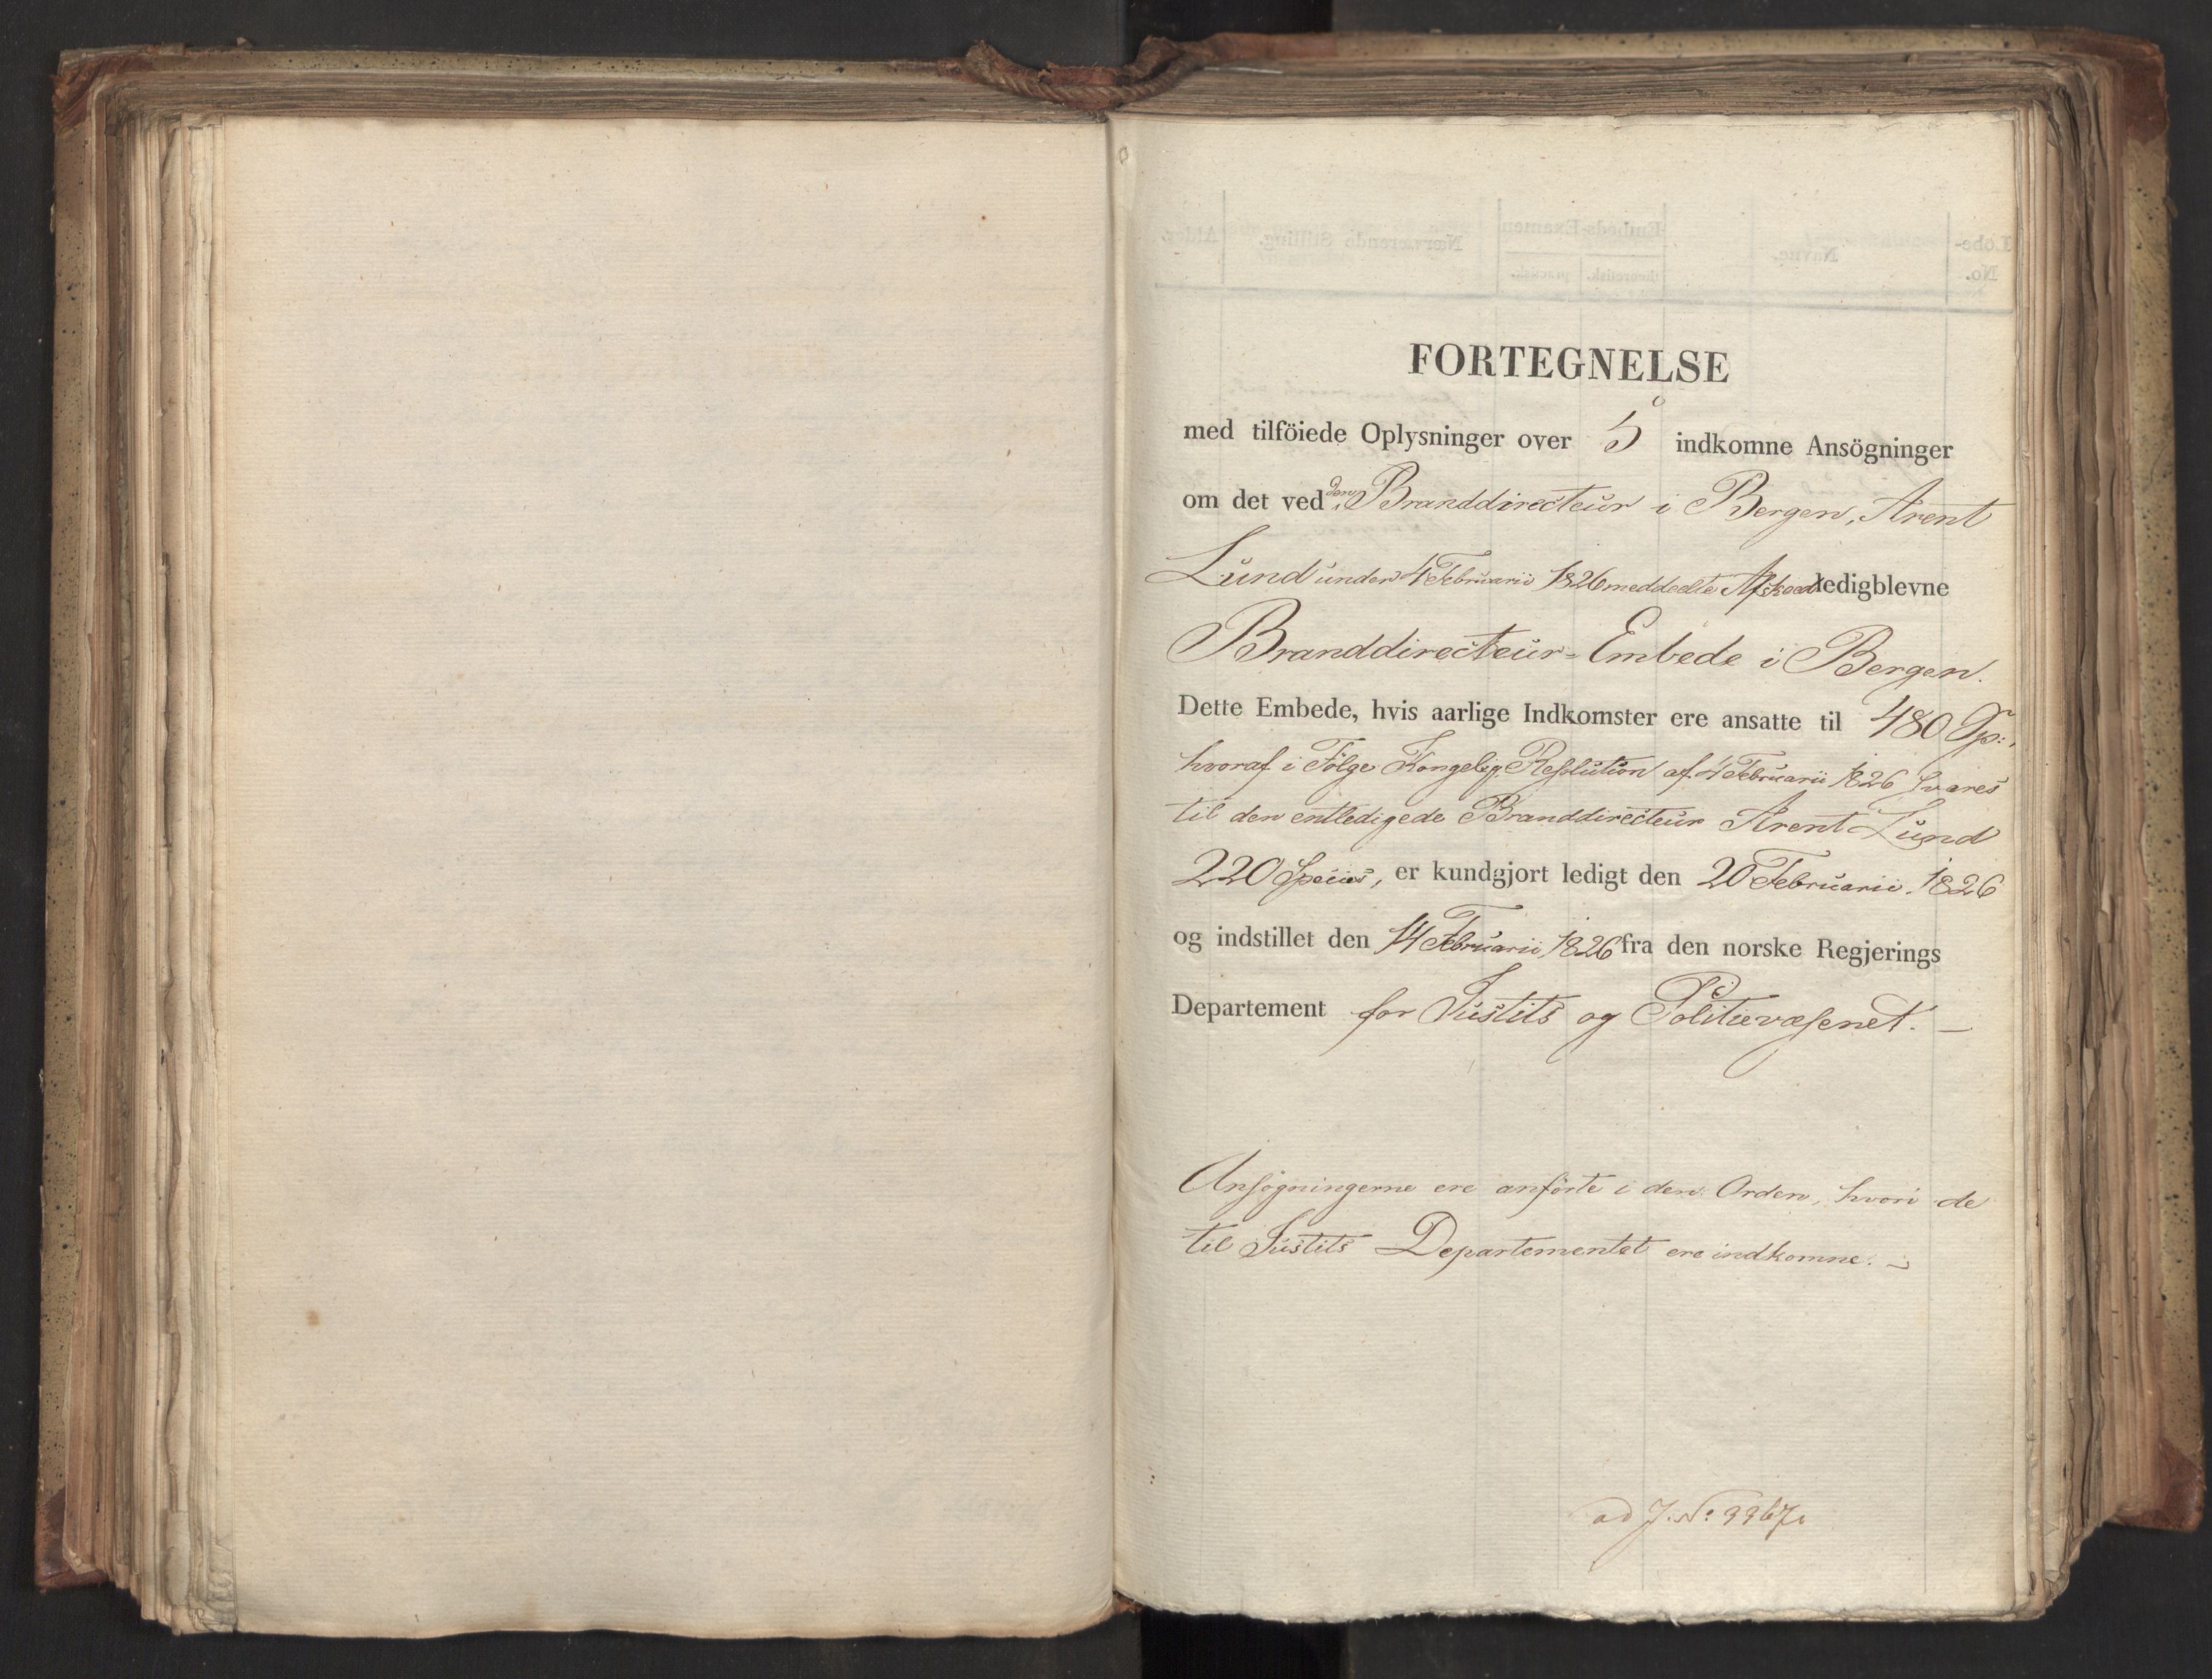 FORTEGNELSE
med tilföiede Oplysninger over 5 indkomne Ansögninger
om det ved den Branddirecteur i Bergen, Arent
Lund under 4 Februarii 1826 meddeelte Afskeed ledigblevne
Branddirecteur-Embede i Bergen.
Dette Embede, hvis aarlige Indkomster ere ansatte til 480 Sp:,
hvoraf i Følge Kongelig Resolution af 4 Februarii 1826 svares
til den entledigede Branddirecteur Arent Lund
220 Species, er kundgjort ledigt den 20 Februarii 1826
og indstillet den 14 Februarii 1826 fra den norske Regjerings
Departement for Justits og Politievæsenet. —
Ansøgningerne ere anførte i den Orden, hvori de
til Justits Departementet ere indkomne. —
ad J. No 3367